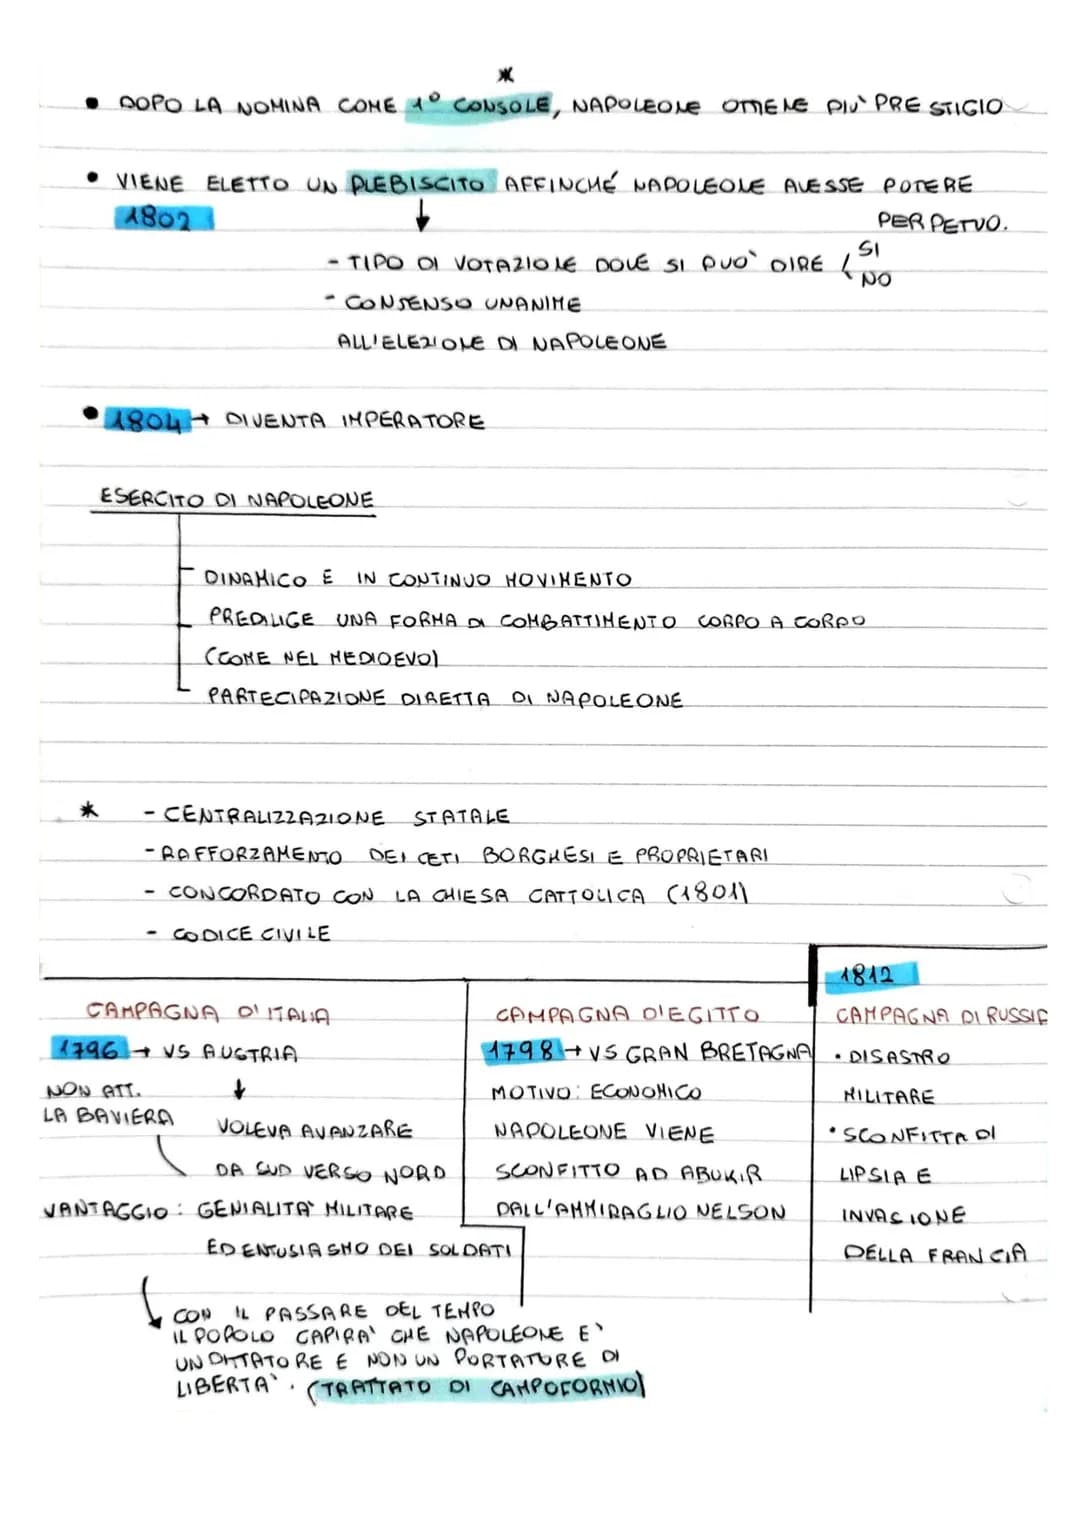 *
• DOPO LA NOMINA COME 1° CONSOLE, NAPOLEONE OTTIENE PIU' PRESTIGIO
• VIENE ELETTO UN PLEBISCITO AFFINCHÉ NAPOLEONE AVESSE POTERE
1802 ↓ PERPETUO.
- TIPO DI VOTAZIONE DOVE SI PUO' DIRE SI
NO
- CONSENSO UNANIME
ALL'ELEZIONE DI NAPOLEONE
• 1804 → DIVENTA IMPERATORE
ESERCITO DI NAPOLEONE
DINAMICO E IN CONTINUO MOVIMENTO
PREDILIGE UNA FORMA DI COMBATTIMENTO CORPO A CORPO
(COME NEL MEDIOEVO)
PARTECIPAZIONE DIRETTA DI NAPOLEONE
* - CENTRALIZZAZIONE STATALE
- RAFFORZAMENTO DEI CETI BORGHESI E PROPRIETARI
- CONCORDATO CON LA CHIESA CATTOLICA (1801)
- CODICE CIVILE
CAMPAGNA D'ITALIA
1796 → VS AUSTRIA
NON ATT. ↓
LA BAVIERA
VOLEVA AVANZARE
DA SUD VERSO NORD
VANTAGGIO: GENIALITA' MILITARE
ED ENTUSIASMO DEI SOLDATI
CON IL PASSARE DEL TEMPO
IL POPOLO CAPIRA' CHE NAPOLEONE E'
UN DITTATORE E NON UN PORTATORE DI
LIBERTA'. (TRATTATO DI CAMPOFORMIO)
CAMPAGNA D'EGITTO
1798 → VS GRAN BRETAGNA
MOTIVO: ECONOMICO
NAPOLEONE VIENE
SCONFITTO AD ABUKIR
DALL'AMMIRAGLIO NELSON
1812
CAMPAGNA DI RUSSIA
• DISASTRO
MILITARE
• SCONFITTA DI
LIPSIA E
INVASIONE
DELLA FRANCIA